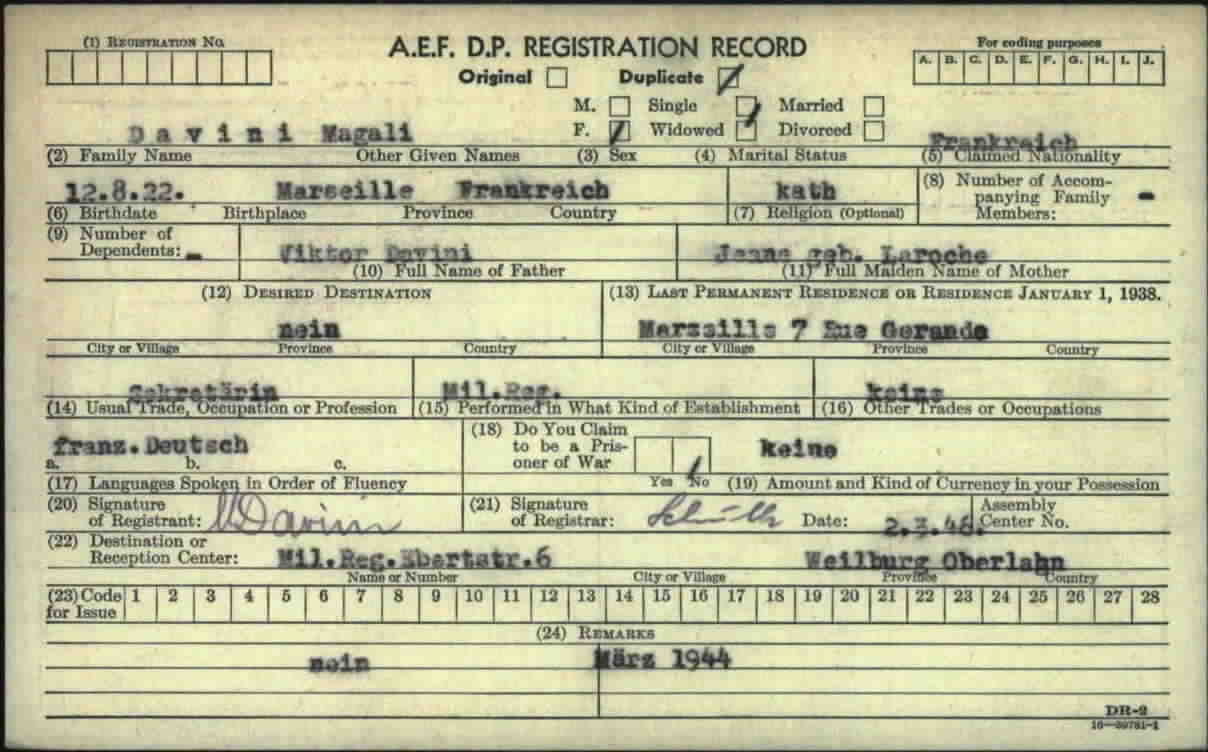 (1) REGISTRATION NO.
A.E.F. D.P. REGISTRATION RECORD
For coding purposes
A. B. C. D. E. F. G. H. I. J.
Original Duplicate
M. Single Married
D a v i n i Magali F. Widowed Divorced Frankreich
(2) Family Name Other Given Names (3) Sex (4) Marital Status (5) Claimed Nationality
12.8.22. Marseille Frankreich kath (8) Number of Accom-
panying Family -
(6) Birthdate Birthplace Province Country (7) Religion (Optional) Members:
(9) Number of
Dependents: - Viktor Davini geb. Laroche
(10) Full Name of Father (11) Full Maiden Name of Mother
(12) DESIRED DESTINATION (13) LAST PERMANENT RESIDENCE OR RESIDENCE JANUARY 1, 1938.
nein 7 Rue
City or Village Province Country City or Village Province Country
Sekretärin Mil.Reg. keine
(14) Usual Trade, Occupation or Profession (15) Performed in What Kind of Establishment (16) Other Trades or Occupations
franz.Deutsch (18) Do You Claim
to be a Pris- keine
a. b. c. oner of War
(17) Languages Spoken in Order of Fluency Yes No (19) Amount and Kind of Currency in your Possession
(20) Signature (21) Signature Assembly
of Registrant: MDavini of Registrar: Date: Center No.
(22) Destination or
Reception Center: Mil.Reg.Ebertstr.6 Weilburg Oberlahn
Name or Number City or Village Province Country
(23) Code 1 2 3 4 5 6 7 8 9 10 11 12 13 14 15 16 17 18 19 20 21 22 23 24 25 26 27 28
for Issue
(24) REMARKS
nein März 1944
DR-2
16-39781-1